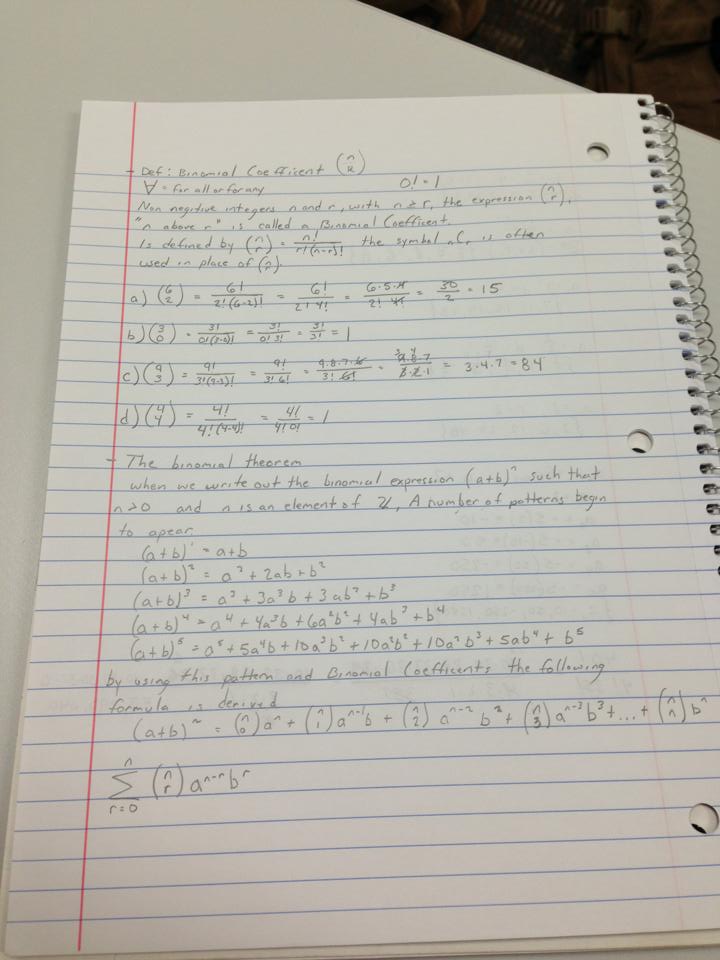 - Def: Binomial Coefficent (n k)
∀ = for all or for any 0! = 1
Non negitive integers n and r, with n ≥ r, the expression (n r),
"n above r" is called a Binomial Coefficent.
Is defined by (n r) = n!/r!(n-r)! the symbol nCr is often
used in place of (n r).
a) (6 2) = 6!/2!(6-2)! = 6!/2!4! = 6·5·4!/2!4! = 30/2 = 15
b) (3 0) = 3!/0!(3-0)! = 3!/0!3! = 3!/3! = 1
c) (9 3) = 9!/3!(9-3)! = 9!/3!6! = 9·8·7·6!/3!6! = 9·8·7/3·2·1 = 3·4·7 = 84
d) (4 4) = 4!/4!(4-4)! = 4!/4!0! = 1
- The binomial theorem
when we write out the binomial expression (a+b)ⁿ such that
n>0 and n is an element of ℤ, A number of patterns begin
to apear.
(a+b)¹ = a+b
(a+b)² = a² + 2ab + b²
(a+b)³ = a³ + 3a²b + 3ab² + b³
(a+b)⁴ = a⁴ + 4a³b + 6a²b² + 4ab³ + b⁴
(a+b)⁵ = a⁵ + 5a⁴b + 10a³b² + 10a²b² + 10a²b³ + 5ab⁴ + b⁵
by using this pattern and Binomial Coefficents the following
formula is derived
(a+b)ⁿ = (n 0)aⁿ + (n 1)aⁿ⁻¹b + (n 2)aⁿ⁻²b² + (n 3)aⁿ⁻³b³ + ... + (n n)bⁿ
n
∑ (n r) aⁿ⁻ʳbʳ
r=0